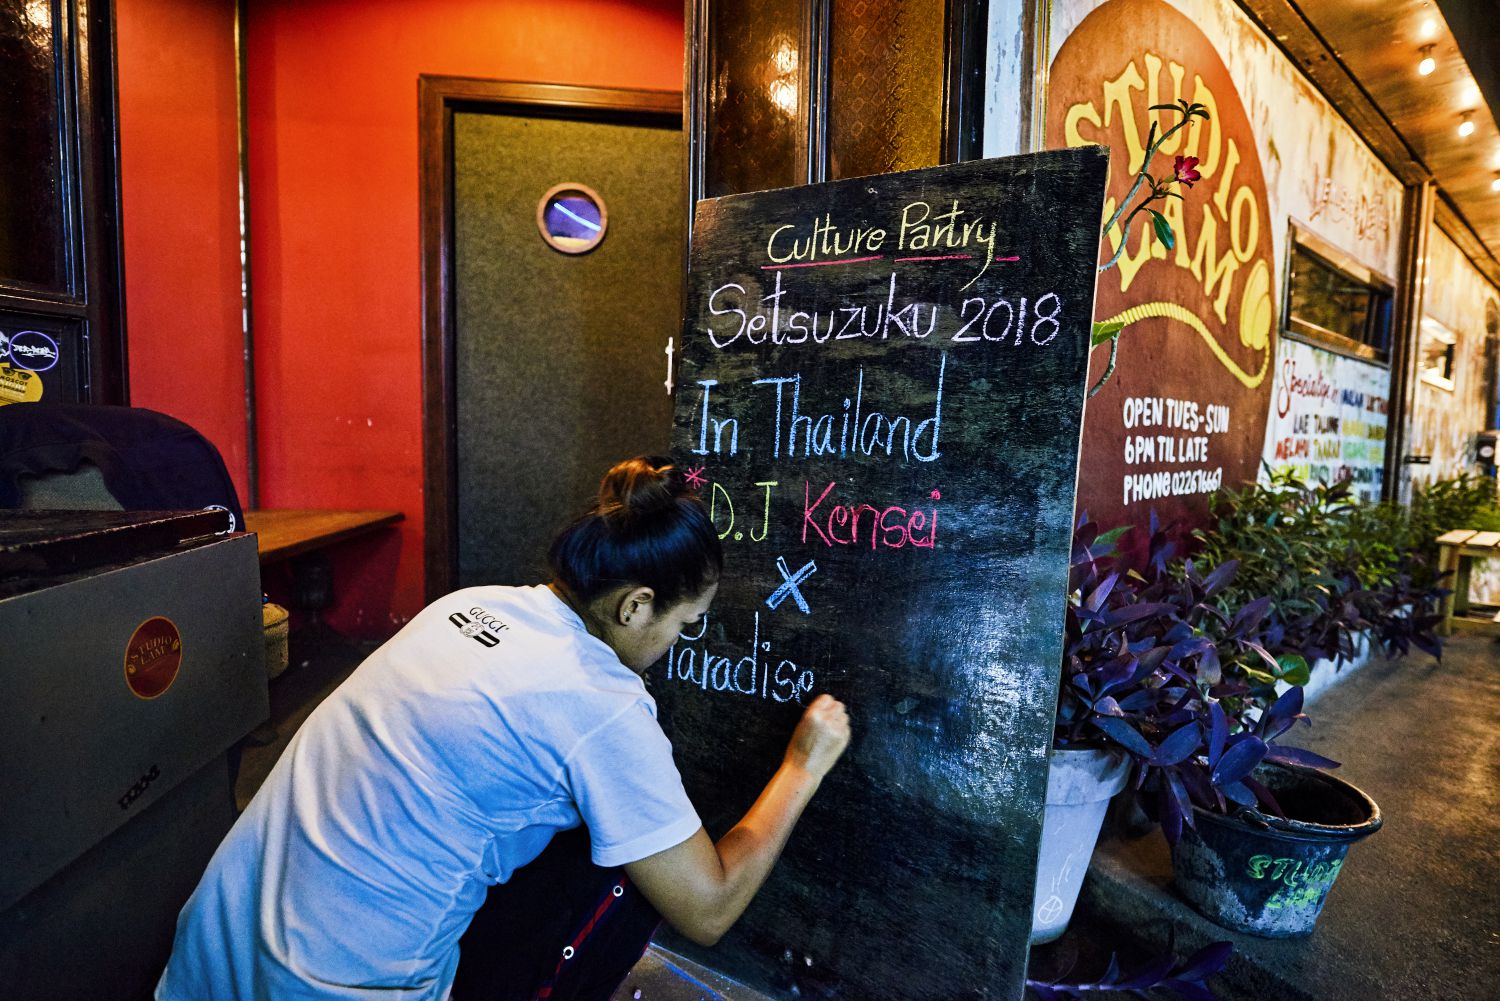 Culture Partry
Setsuzuku 2018
In Thailand
*D.J Kensei
X
Paradise
GUCCI
STUDIO
LAM
STUDIO
LAM
OPEN TUES-SUN
6PM TIL LATE
PHONE 022616661
Specialize in
STUDIO
LAM